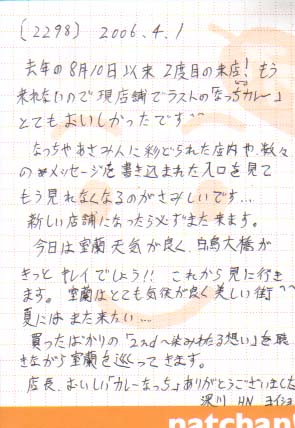 (2298) 2006.4.1
去年の8月10日以来 2度目の来店! もう
来れないので現店舗でラストの「なっちカレー」
とてもおいしかったです^^
なっちやあさみんに彩どられた店内や、数々
のメッセージを書き込まれた入口を見て
もう見れなくなるのがさみしいです…
新しい店舗になったら必ずまた来ます。
今日は室蘭天気が良く、白鳥大橋が
きっとキレイでしょう!! これから見に行き
ます。室蘭はとても気候が良く美しい街^^
夏にはまた来たい…
買ったばかりの「2nd〜染みわたる想い」を聴
きながら室蘭を巡ってきます。
店長、おいしい「カレーなっち」ありがとうございました
深川 HN ヨイショ
patchan